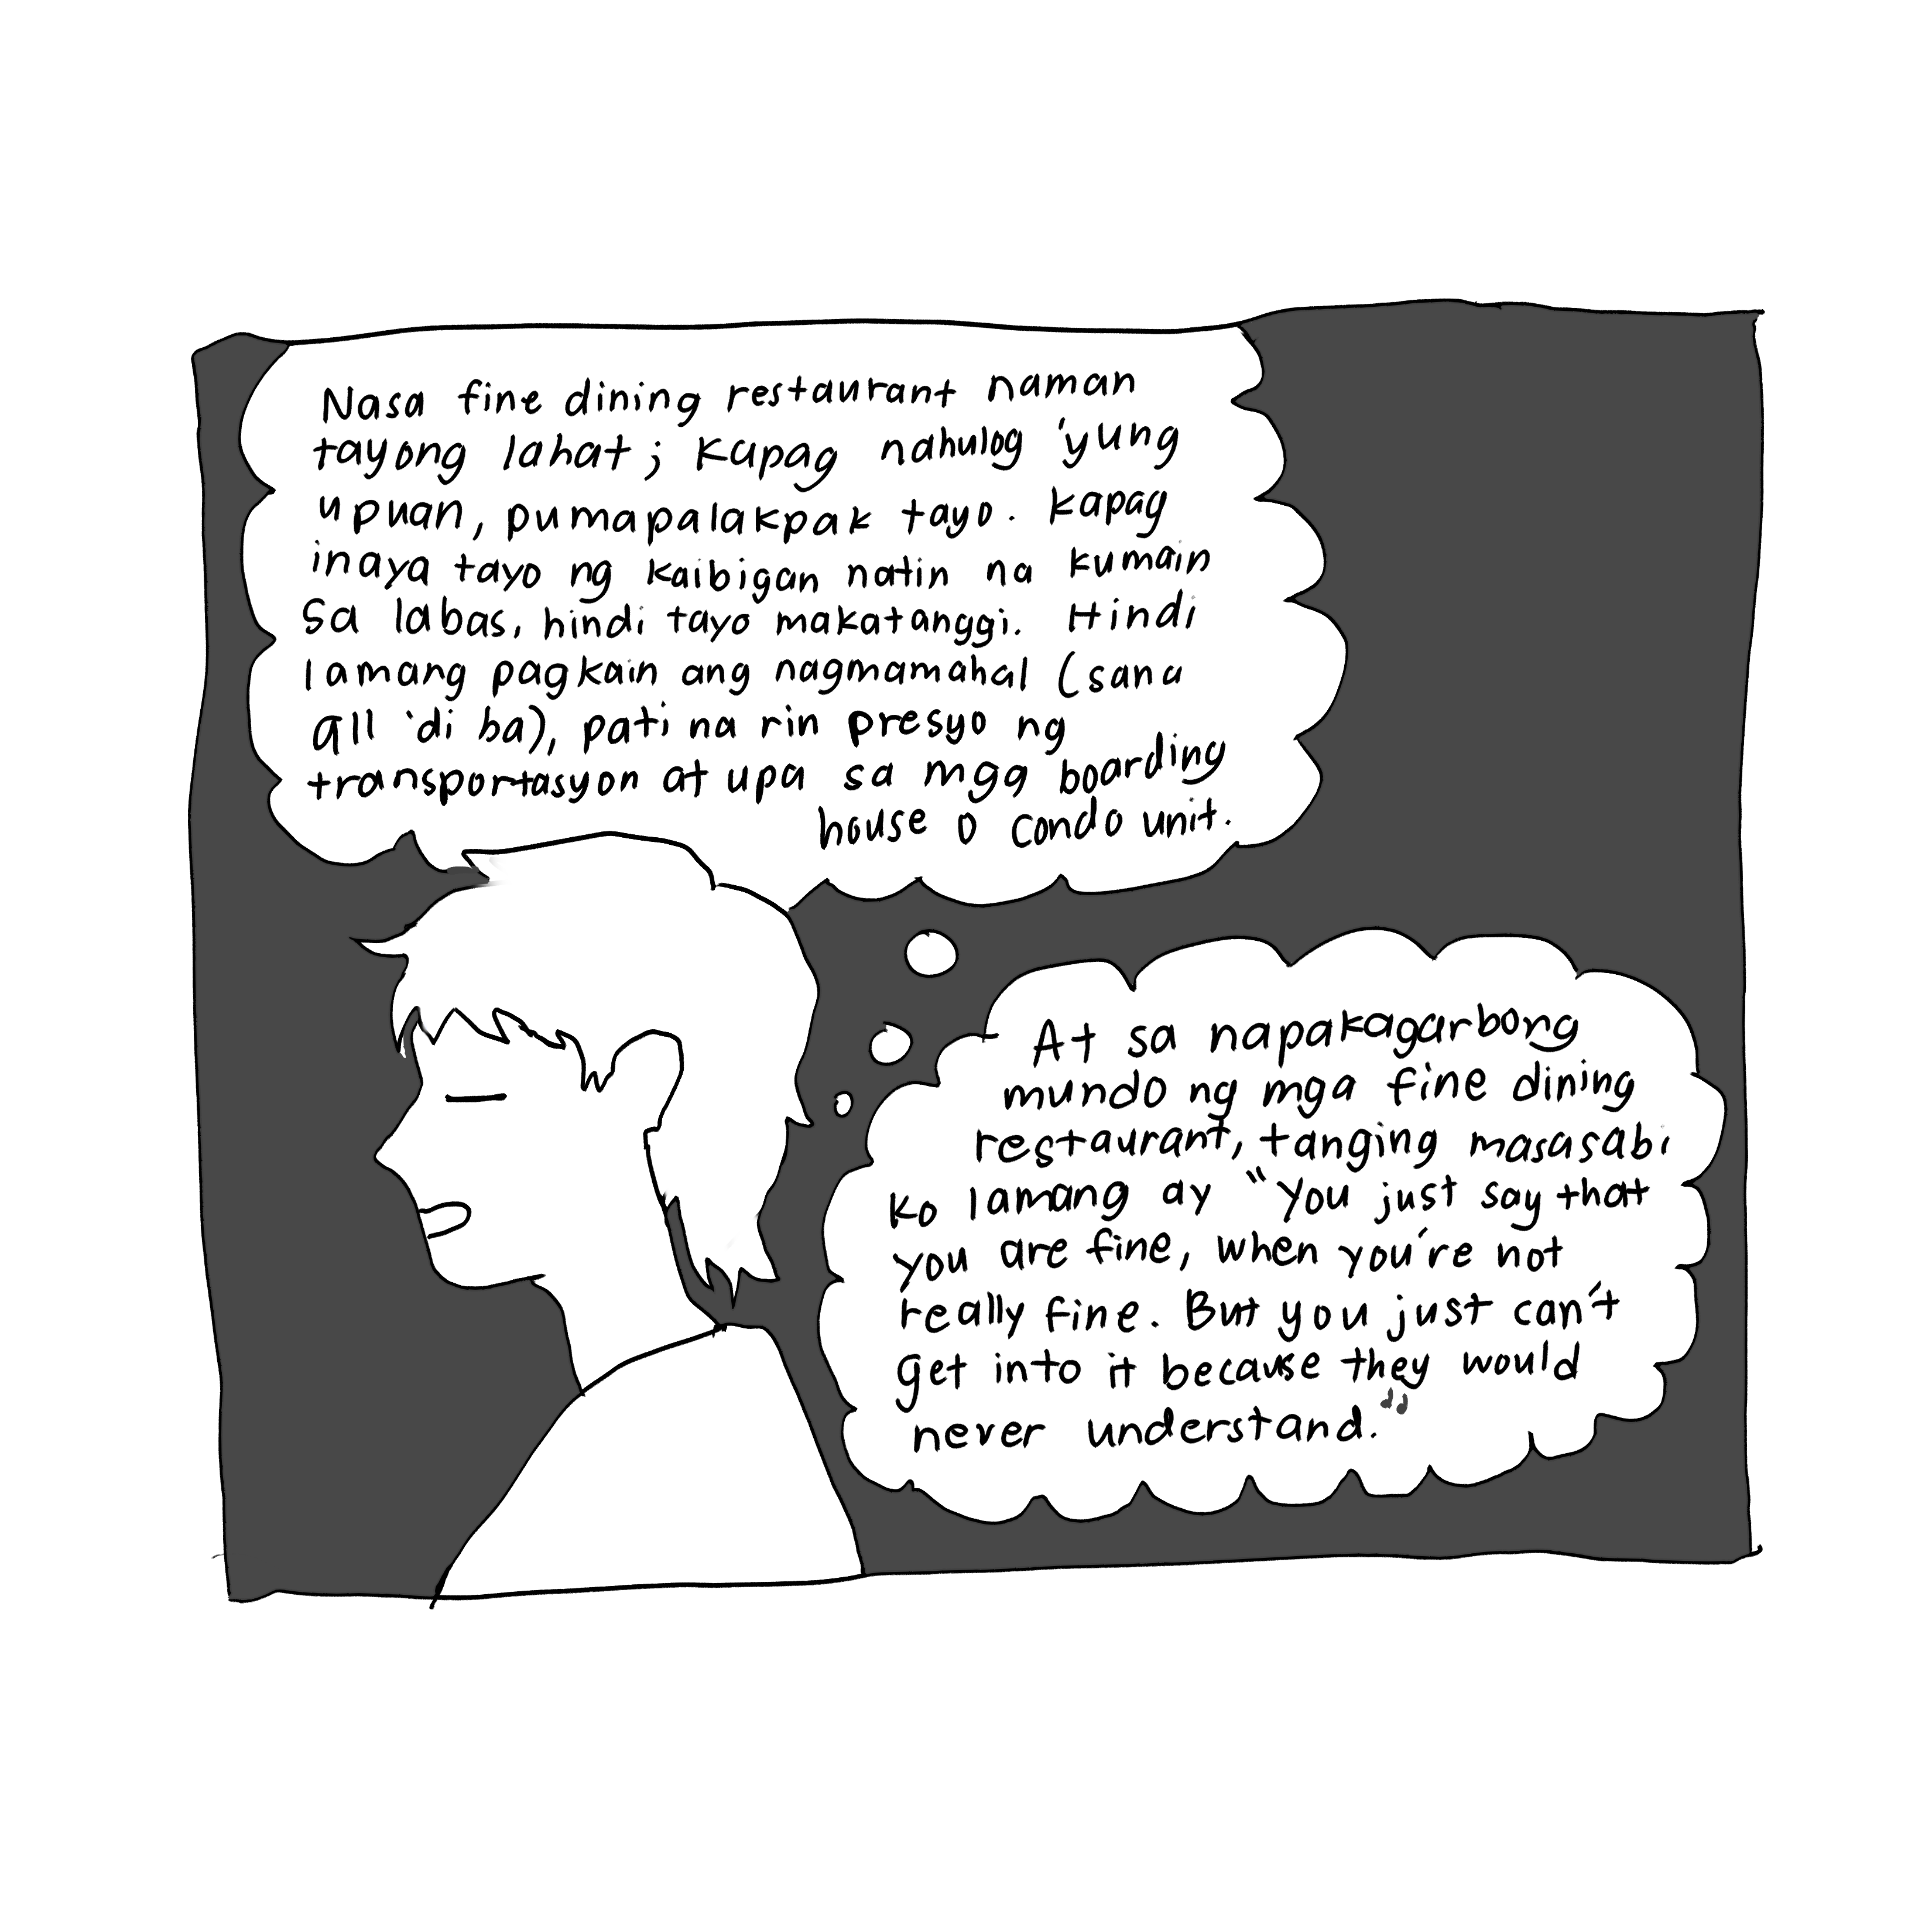 Nasa fine dining restaurant naman
tayong lahat; kapag nahulog 'yung
upuan, pumapalakpak tayo. kapag
inaya tayo ng kaibigan natin na kumain
sa labas, hindi tayo makatanggi. Hindi
lamang pagkain ang nagmamahal (sana
all 'di ba), pati na rin presyo ng
transportasyon at upa sa mga boarding
house o condo unit.
At sa napakagarbong
mundo ng mga fine dining
restaurant, tanging masasabi
ko lamang ay "You just say that
you are fine, when you're not
really fine. But you just can't
get into it because they would
never understand."